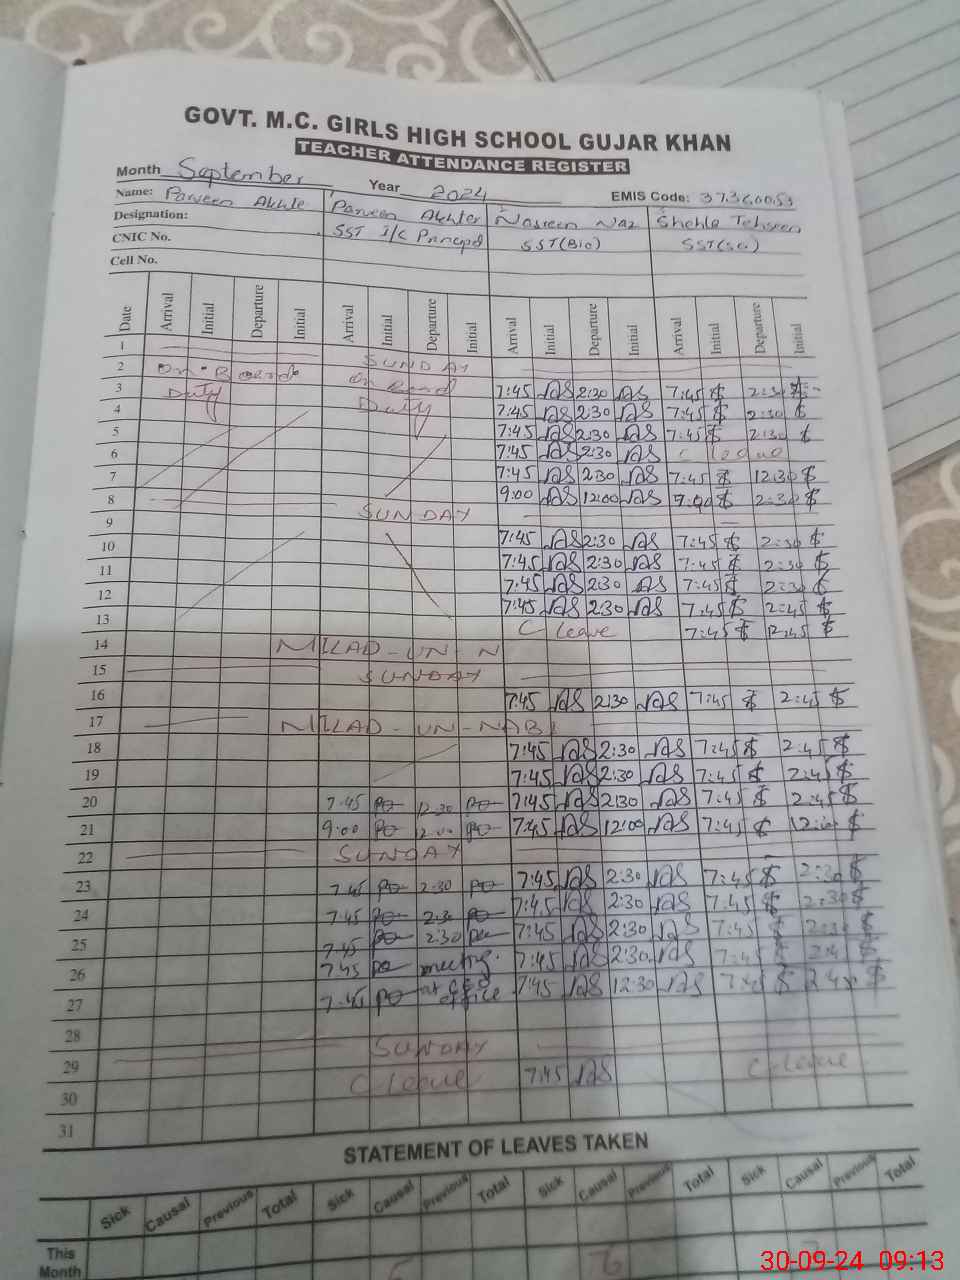 GOVT. M.C. GIRLS HIGH SCHOOL GUJAR KHAN
TEACHER ATTENDANCE REGISTER
Month September Year 2024 EMIS Code: 37360053
Name: Parveen Akhte Parveen Akhter Nasreen Naz Shehla Tehseen
Designation: SST I/C Principal SST(Bio) SST(Sc)
CNIC No.
Cell No.
Date Arrival Initial Departure Initial Arrival Initial Departure Initial Arrival Initial Departure Initial Arrival Initial Departure Initial
1 SUNDAY
2 On Board On Board 7:45 2:30 7:45 2:30
3 Duty Duty 7:45 2:30 7:45 2:30
4 7:45 2:30 7:45 2:30
5 7:45 2:30 C leave
6 7:45 2:30 7:45 12:30
7 9:00 12:00 9:00 2:30
8 SUNDAY
9 7:45 2:30 7:45 2:30
10 7:45 2:30 7:45 2:30
11 7:45 2:30 7:45 2:30
12 7:45 2:30 7:45 2:45
13 C leave 7:45 12:45
14 MILAD-UN-N
15 SUNDAY
16 7:45 2:30 7:45 2:45
17 MILAD-UN-NABI
18 7:45 2:30 7:45 2:45
19 7:45 2:30 7:45 2:45
20 7:45 12:30 7:45 2:30 7:45 2:45
21 9:00 12:00 7:45 12:00 7:45 12:00
22 SUNDAY
23 7:45 2:30 7:45 2:30 7:45 2:30
24 7:45 2:30 7:45 2:30 7:45 2:30
25 7:45 2:30 7:45 2:30 7:45 2:30
26 7:45 meeting 7:45 2:30 7:45
27 7:45 at CEO office 7:45 12:30 7:45
28
29 SUNDAY
30 C leave 7:45 C leave
31
STATEMENT OF LEAVES TAKEN
Sick Causal Previous Total Sick Causal Previous Total Sick Causal Previous Total Sick Causal Previous Total
This Month
30-09-24 09:13